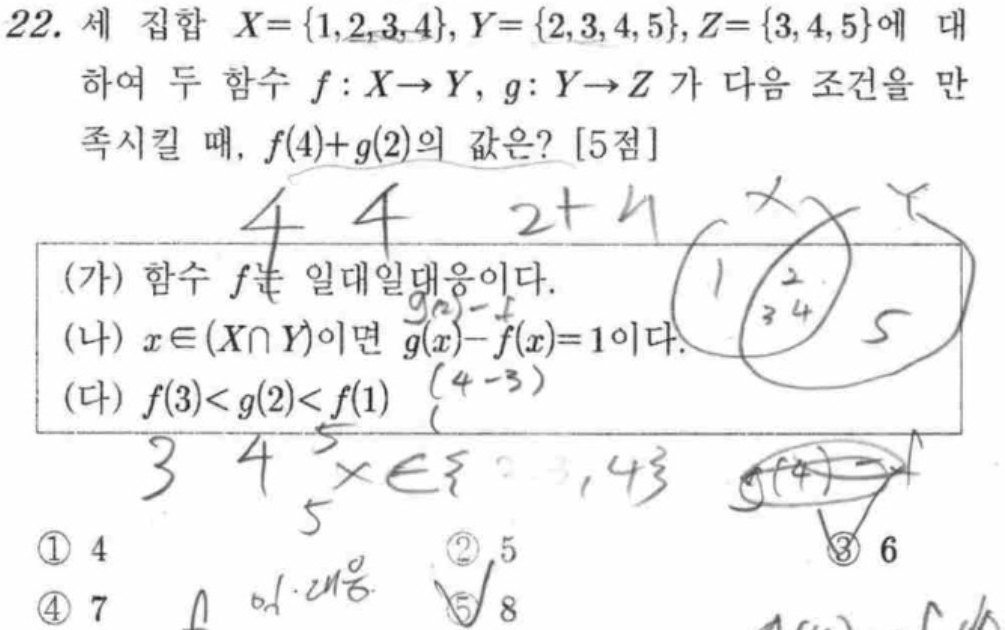 22. 세 집합 X={1,2,3,4}, Y={2,3,4,5}, Z={3,4,5}에 대
하여 두 함수 f : X→Y, g : Y→Z 가 다음 조건을 만
족시킬 때, f(4)+g(2)의 값은? [5점]
4 4 2+4 X Y
(가) 함수 f는 일대일대응이다.
1 2 3 4 5
g(2)-f
(나) x∈(X∩Y)이면 g(x)-f(x)=1이다.
(4-3)
(다) f(3)<g(2)<f(1)
(
3 4 5 x∈{ , 4} g(4)-f
5
① 4 ② 5 ③ 6
대응
④ 7 f ⑤ 8